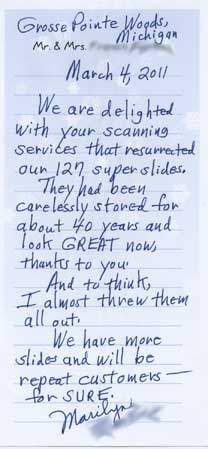 Grosse Pointe Woods,
Michigan
Mr. & Mrs.
March 4, 2011
We are delighted
with your scanning
services that resurrected
our 127 super slides.
They had been
carelessly stored for
about 40 years and
look GREAT now,
thanks to you.
And to think,
I almost threw them
all out.
We have more
slides and will be
repeat customers—
for SURE.
Marilyn